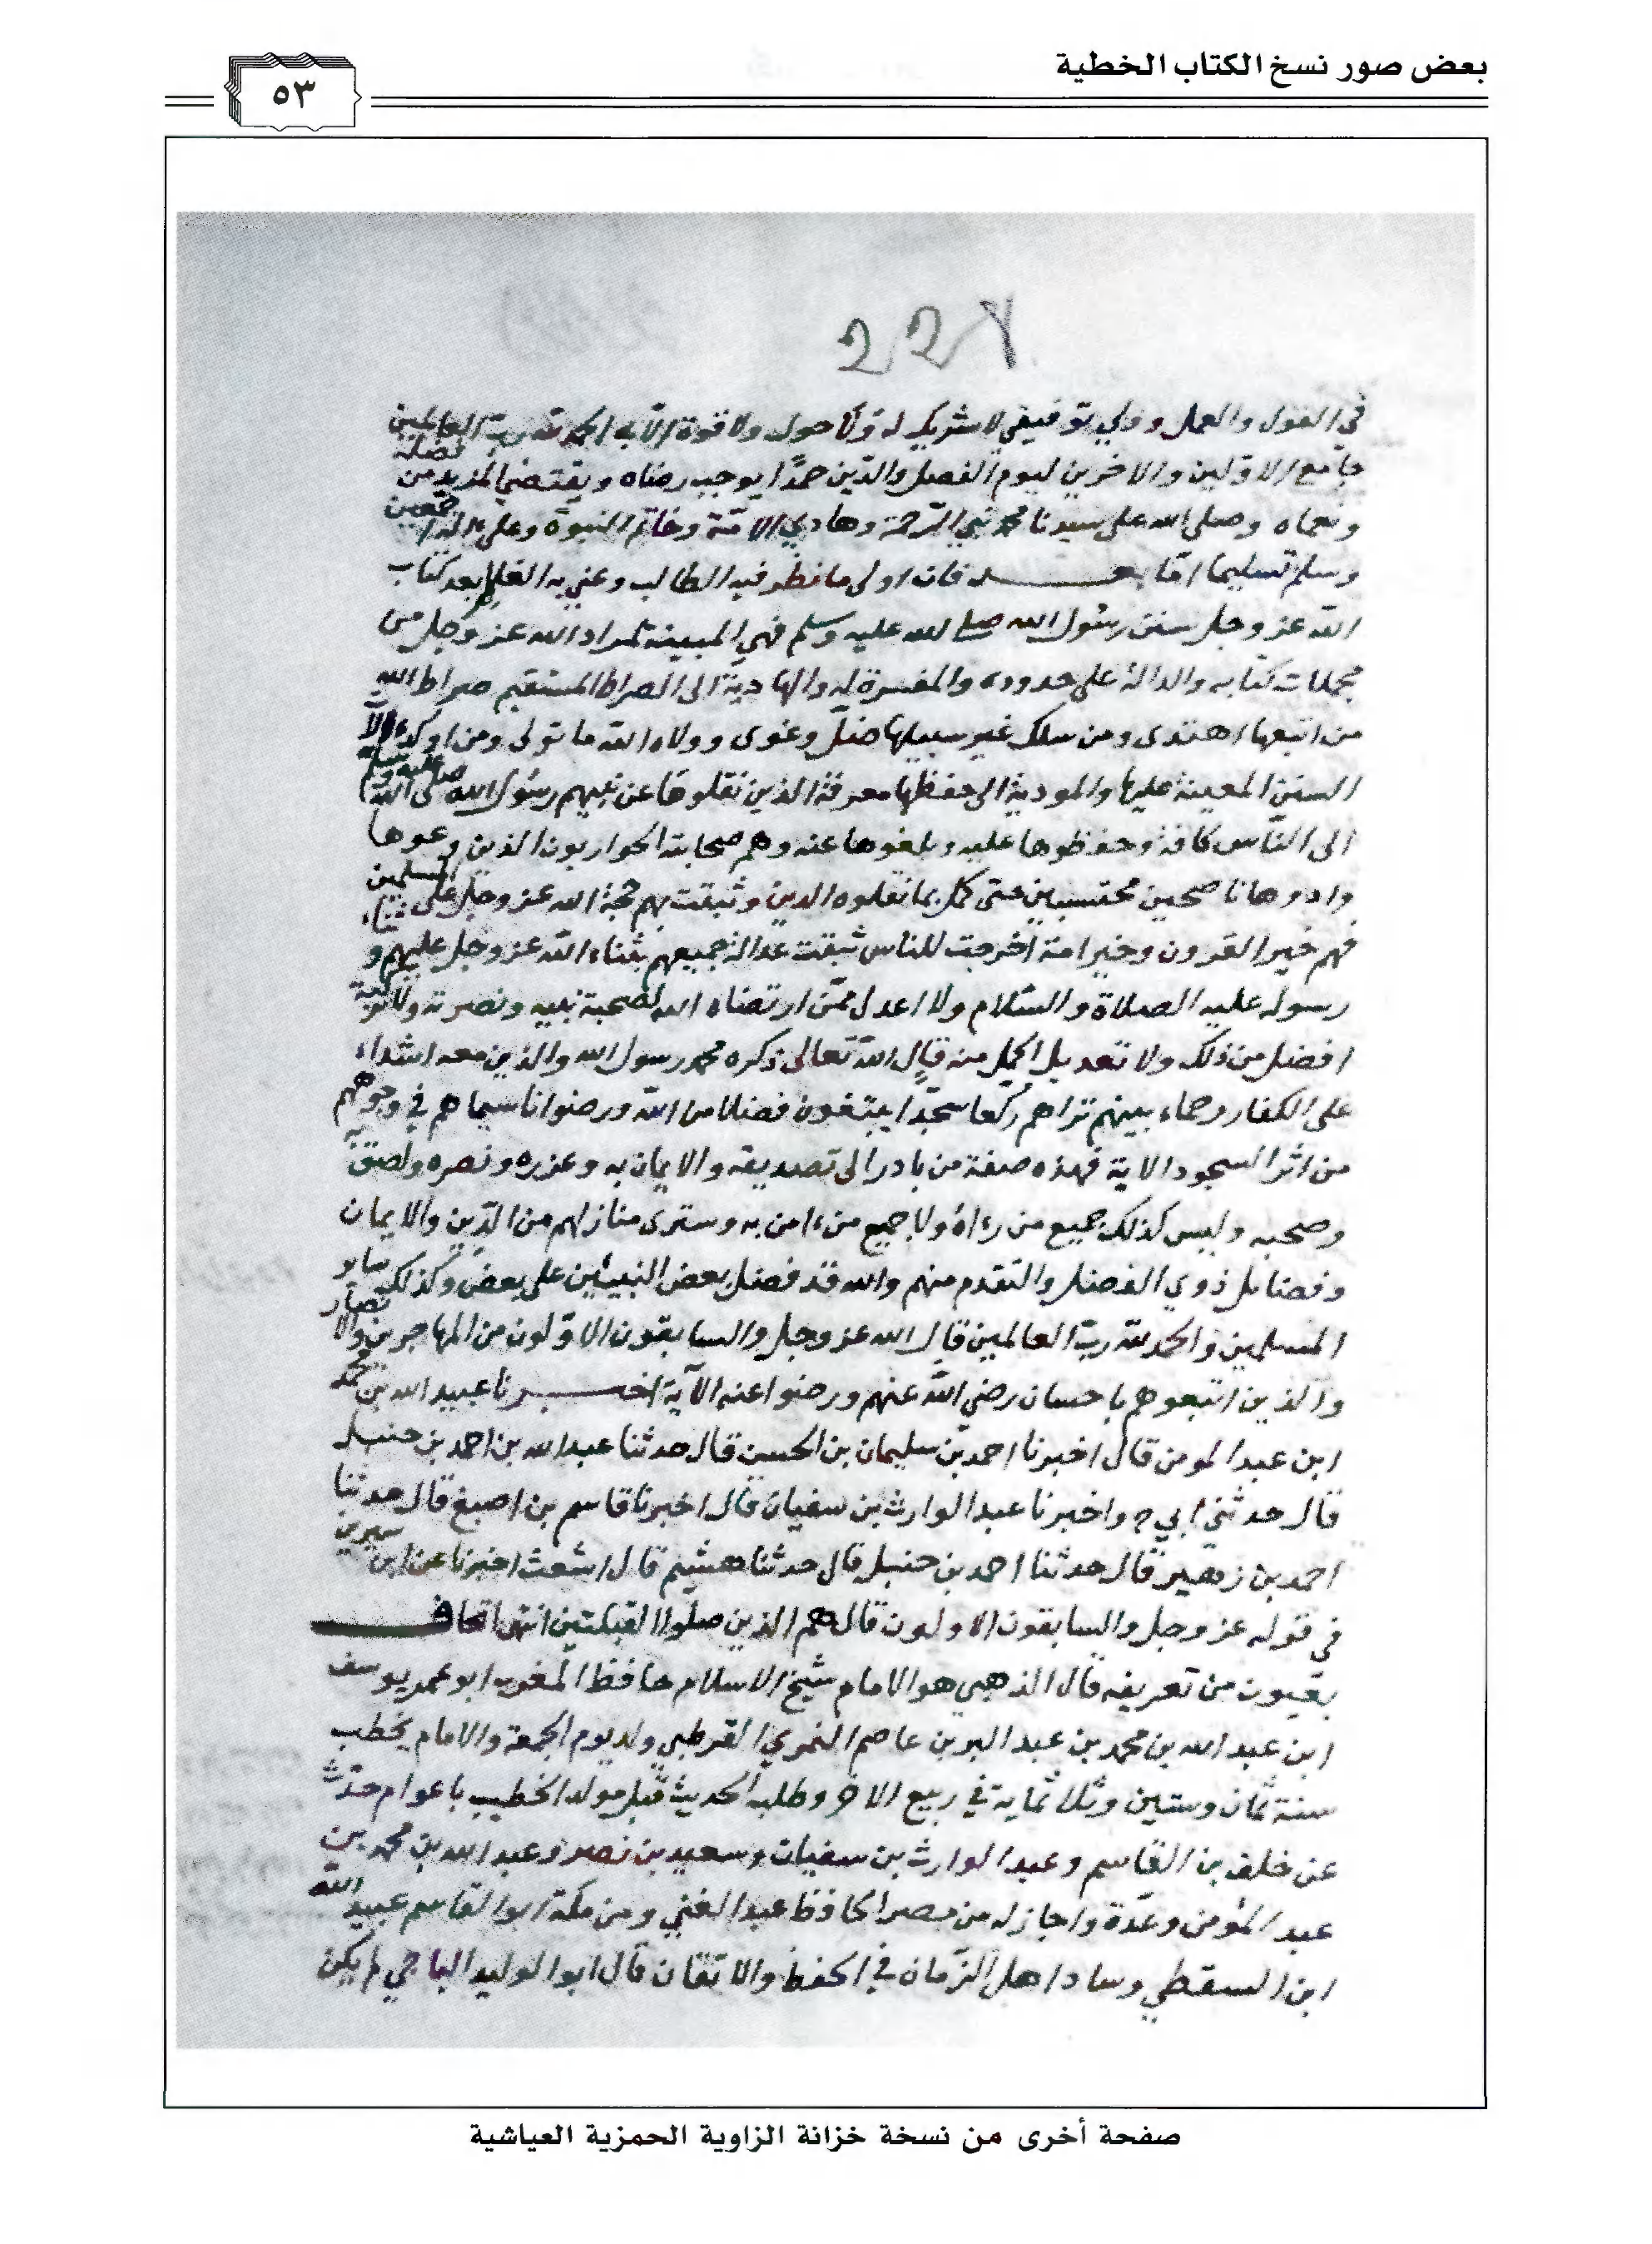 بعض صور نسخ الكتاب الخطية
٥٣
22
في القول والعمل وولي توفيقي لا شريك له ولا حول ولا قوة الا به الحمد لله رب العالمين
جامع الاولين والاخرين ليوم الفصل والدين حمدا يوجب رضاه ويقتضي المزيد من فضله
ونعماه وصلى الله على سيدنا محمد نبي الرحمة وهادي الامة وخاتم النبوة وعلى اله اجمعين
وسلم تسليما اما بعد فان اولى ما نظر فيه الطالب وعني به العالم بعد كتاب
الله عز وجل سنن رسول الله صلى الله عليه وسلم فهي المبينة لمراد الله عز وجل من
مجملات كتابه والدالة على حدوده والمفسرة له والهادية الى الصراط المستقيم صراط الله
من اتبعها اهتدى ومن سلك غير سبيلها ضل وغوى وولاه الله ما تولى ومن اوكد الا
السنن المعينة عليها والمودية الى حفظها معرفة الذين نقلوها عن نبيهم رسول الله صلى الله عليه وسلم
الى الناس كافة وحفظوها عليه وبلغوها عنه وهم صحابته الحواريون الذين وعوها
وادوها ناصحين محتسبين حتى كمل بما نقلوه الدين وثبتت بهم حجة الله عز وجل على المسلمين
فهم خير القرون وخير امة اخرجت للناس ثبتت عدالة جميعهم بثناء الله عز وجل عليهم وثناء
رسوله عليه الصلاة والسلام ولا اعدل ممن ارتضاه الله لصحبة نبيه ونصرته ولا تزكية
افضل من ذلك ولا تعديل اكمل منه قال الله تعالى ذكره محمد رسول الله والذين معه اشداء
على الكفار رحماء بينهم تراهم ركعا سجدا يبتغون فضلا من الله ورضوانا سيماهم في وجوههم
من اثر السجود الاية فهذه صفة من بادر الى تصديقه والايمان به وعزره ونصره ولصق به
وصحبه وليس كذلك جميع من رءاه ولا جميع من ءامن به وسترى منازلهم من الدين والايمان
وفضائل ذوي الفضل والتقدم منهم والله قد فضل بعض النبيئين على بعض وكذلك ساير
المسلمين والحمد لله رب العالمين قال الله عز وجل والسابقون الاولون من المهاجرين والانصار
والذين اتبعوهم باحسان رضي الله عنهم ورضوا عنه الآية اخبرنا عبيد الله بن محمد
ابن عبد المومن قال اخبرنا احمد بن سليمان بن الحسن قال حدثنا عبد الله بن احمد بن حنبل
قال حدثني ابي ح واخبرنا عبد الوارث بن سفيان قال اخبرنا قاسم بن اصبغ قال حدثنا
احمد بن زهير قال حدثنا احمد بن حنبل قال حدثنا هشيم قال اشعث اخبرنا عن ابن سيرين
في قوله عز وجل والسابقون الاولون قال هم الذين صلوا القبلتين انتهى اتحاف
بعيون من تعريفه قال الذهبي هو الامام شيخ الاسلام حافظ المغرب ابو عمر يوسف
ابن عبد الله بن محمد بن عبد البر بن عاصم النمري القرطبي ولد يوم الجمعة والامام يخطب
سنة ثمان وستين وثلاثماية في ربيع الاخر وطلب الحديث قبل مولد الخطيب باعوام حدث
عن خلف بن القاسم وعبد الوارث بن سفيان وسعيد بن نصر وعبد الله بن محمد بن
عبد المؤمن وعدة واجاز له من مصر الحافظ عبد الغني ومن مكة ابو القاسم عبيد الله
ابن السقطي وساد اهل الزمان في الحفظ والاتقان قال ابو الوليد الباجي لم يكن
صفحة أخرى من نسخة خزانة الزاوية الحمزية العياشية